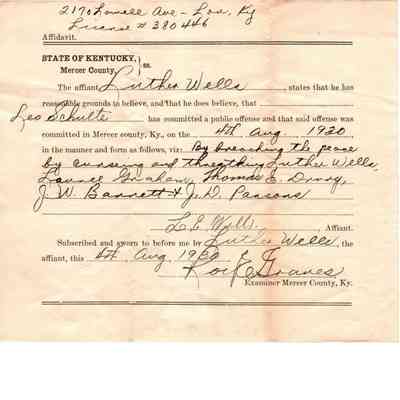 2170 Lowell Ave - Lou, Ky
License # 380446
Affidavit.
STATE OF KENTUCKY,
Mercer County, } ss.
The affiant, Luther Wells, states that he has
reasonable grounds to believe, and that he does believe, that
Leo Schulte has committed a public offense and that said offense was
committed in Mercer county, Ky., on the 4th Aug. 1920,
in the manner and form as follows, viz: By breaching the peace
by curseing and threatning Luther Wells,
Graham, Thomas E.
J. W. Barnett & J. D. Parsons
L. E. Wells Affiant.
Subscribed and sworn to before me by Luther Wells, the
affiant, this 4th Aug 1920
Graves
Examiner Mercer County, Ky.